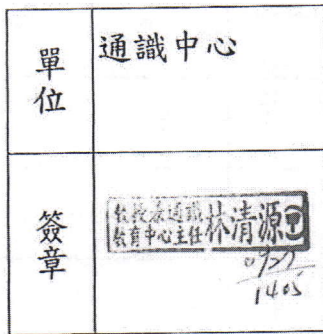 單位
通識中心
簽章
教授兼通識
教育中心主任
林清源
0927
1405